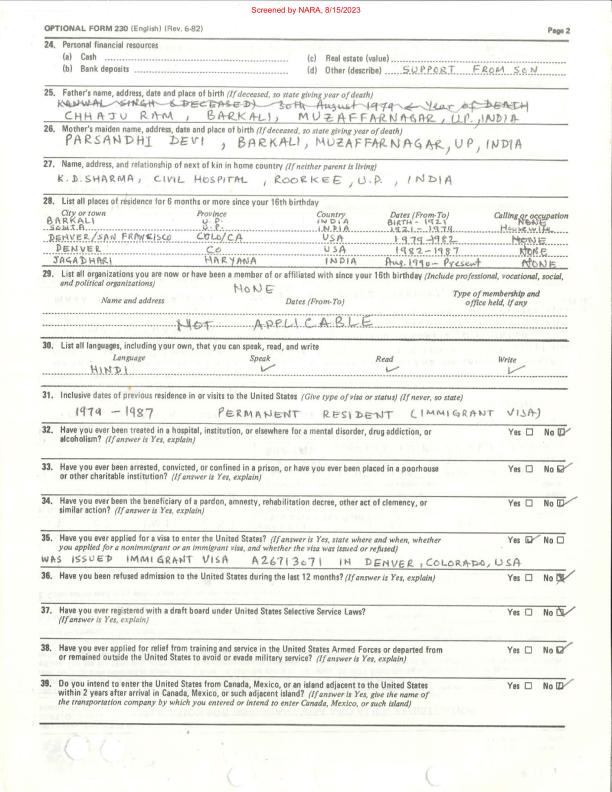 Screened by NARA, 8/15/2023
OPTIONAL FORM 230 (English) (Rev. 6-82) Page 2
24. Personal financial resources
(a) Cash (c) Real estate (value)
(b) Bank deposits (d) Other (describe) SUPPORT FROM SON
25. Father's name, address, date and place of birth (If deceased, so state giving year of death)
KANWAL SINGH (DECEASED) 30th August 1979 ← Year of DEATH
CHHAJU RAM, BARKALI, MUZAFFARNAGAR, U.P., INDIA
26. Mother's maiden name, address, date and place of birth (If deceased, so state giving year of death)
PARSANDHI DEVI, BARKALI, MUZAFFARNAGAR, UP, INDIA
27. Name, address, and relationship of next of kin in home country (If neither parent is living)
K.D. SHARMA, CIVIL HOSPITAL, ROORKEE, U.P., INDIA
28. List all places of residence for 6 months or more since your 16th birthday
City or town Province Country Dates (From-To) Calling or occupation
BARKALI U.P. INDIA BIRTH - 1921 NONE
SONTA U.P. INDIA 1921-1979 Housewife
DENVER/SAN FRANCISCO COLO/CA USA 1979-1982 NONE
DENVER CO USA 1982-1987 NONE
JAGADHARI HARYANA INDIA Aug. 1990- Present NONE
29. List all organizations you are now or have been a member of or affiliated with since your 16th birthday (Include professional, vocational, social,
and political organizations) NONE
Name and address Dates (From-To) Type of membership and
office held, if any
NOT APPLICABLE
30. List all languages, including your own, that you can speak, read, and write
Language Speak Read Write
HINDI ✓ ✓ ✓
31. Inclusive dates of previous residence in or visits to the United States (Give type of visa or status) (If never, so state)
1979 - 1987 PERMANENT RESIDENT (IMMIGRANT VISA)
32. Have you ever been treated in a hospital, institution, or elsewhere for a mental disorder, drug addiction, or Yes ☐ No ☑
alcoholism? (If answer is Yes, explain)
33. Have you ever been arrested, convicted, or confined in a prison, or have you ever been placed in a poorhouse Yes ☐ No ☑
or other charitable institution? (If answer is Yes, explain)
34. Have you ever been the beneficiary of a pardon, amnesty, rehabilitation decree, other act of clemency, or Yes ☐ No ☑
similar action? (If answer is Yes, explain)
35. Have you ever applied for a visa to enter the United States? (If answer is Yes, state where and when, whether Yes ☑ No ☐
you applied for a nonimmigrant or an immigrant visa, and whether the visa was issued or refused)
WAS ISSUED IMMIGRANT VISA A26713071 IN DENVER, COLORADO, USA
36. Have you been refused admission to the United States during the last 12 months? (If answer is Yes, explain) Yes ☐ No ☑
37. Have you ever registered with a draft board under United States Selective Service Laws? Yes ☐ No ☑
(If answer is Yes, explain)
38. Have you ever applied for relief from training and service in the United States Armed Forces or departed from Yes ☐ No ☑
or remained outside the United States to avoid or evade military service? (If answer is Yes, explain)
39. Do you intend to enter the United States from Canada, Mexico, or an island adjacent to the United States Yes ☐ No ☑
within 2 years after arrival in Canada, Mexico, or such adjacent island? (If answer is Yes, give the name of
the transportation company by which you entered or intend to enter Canada, Mexico, or such island)